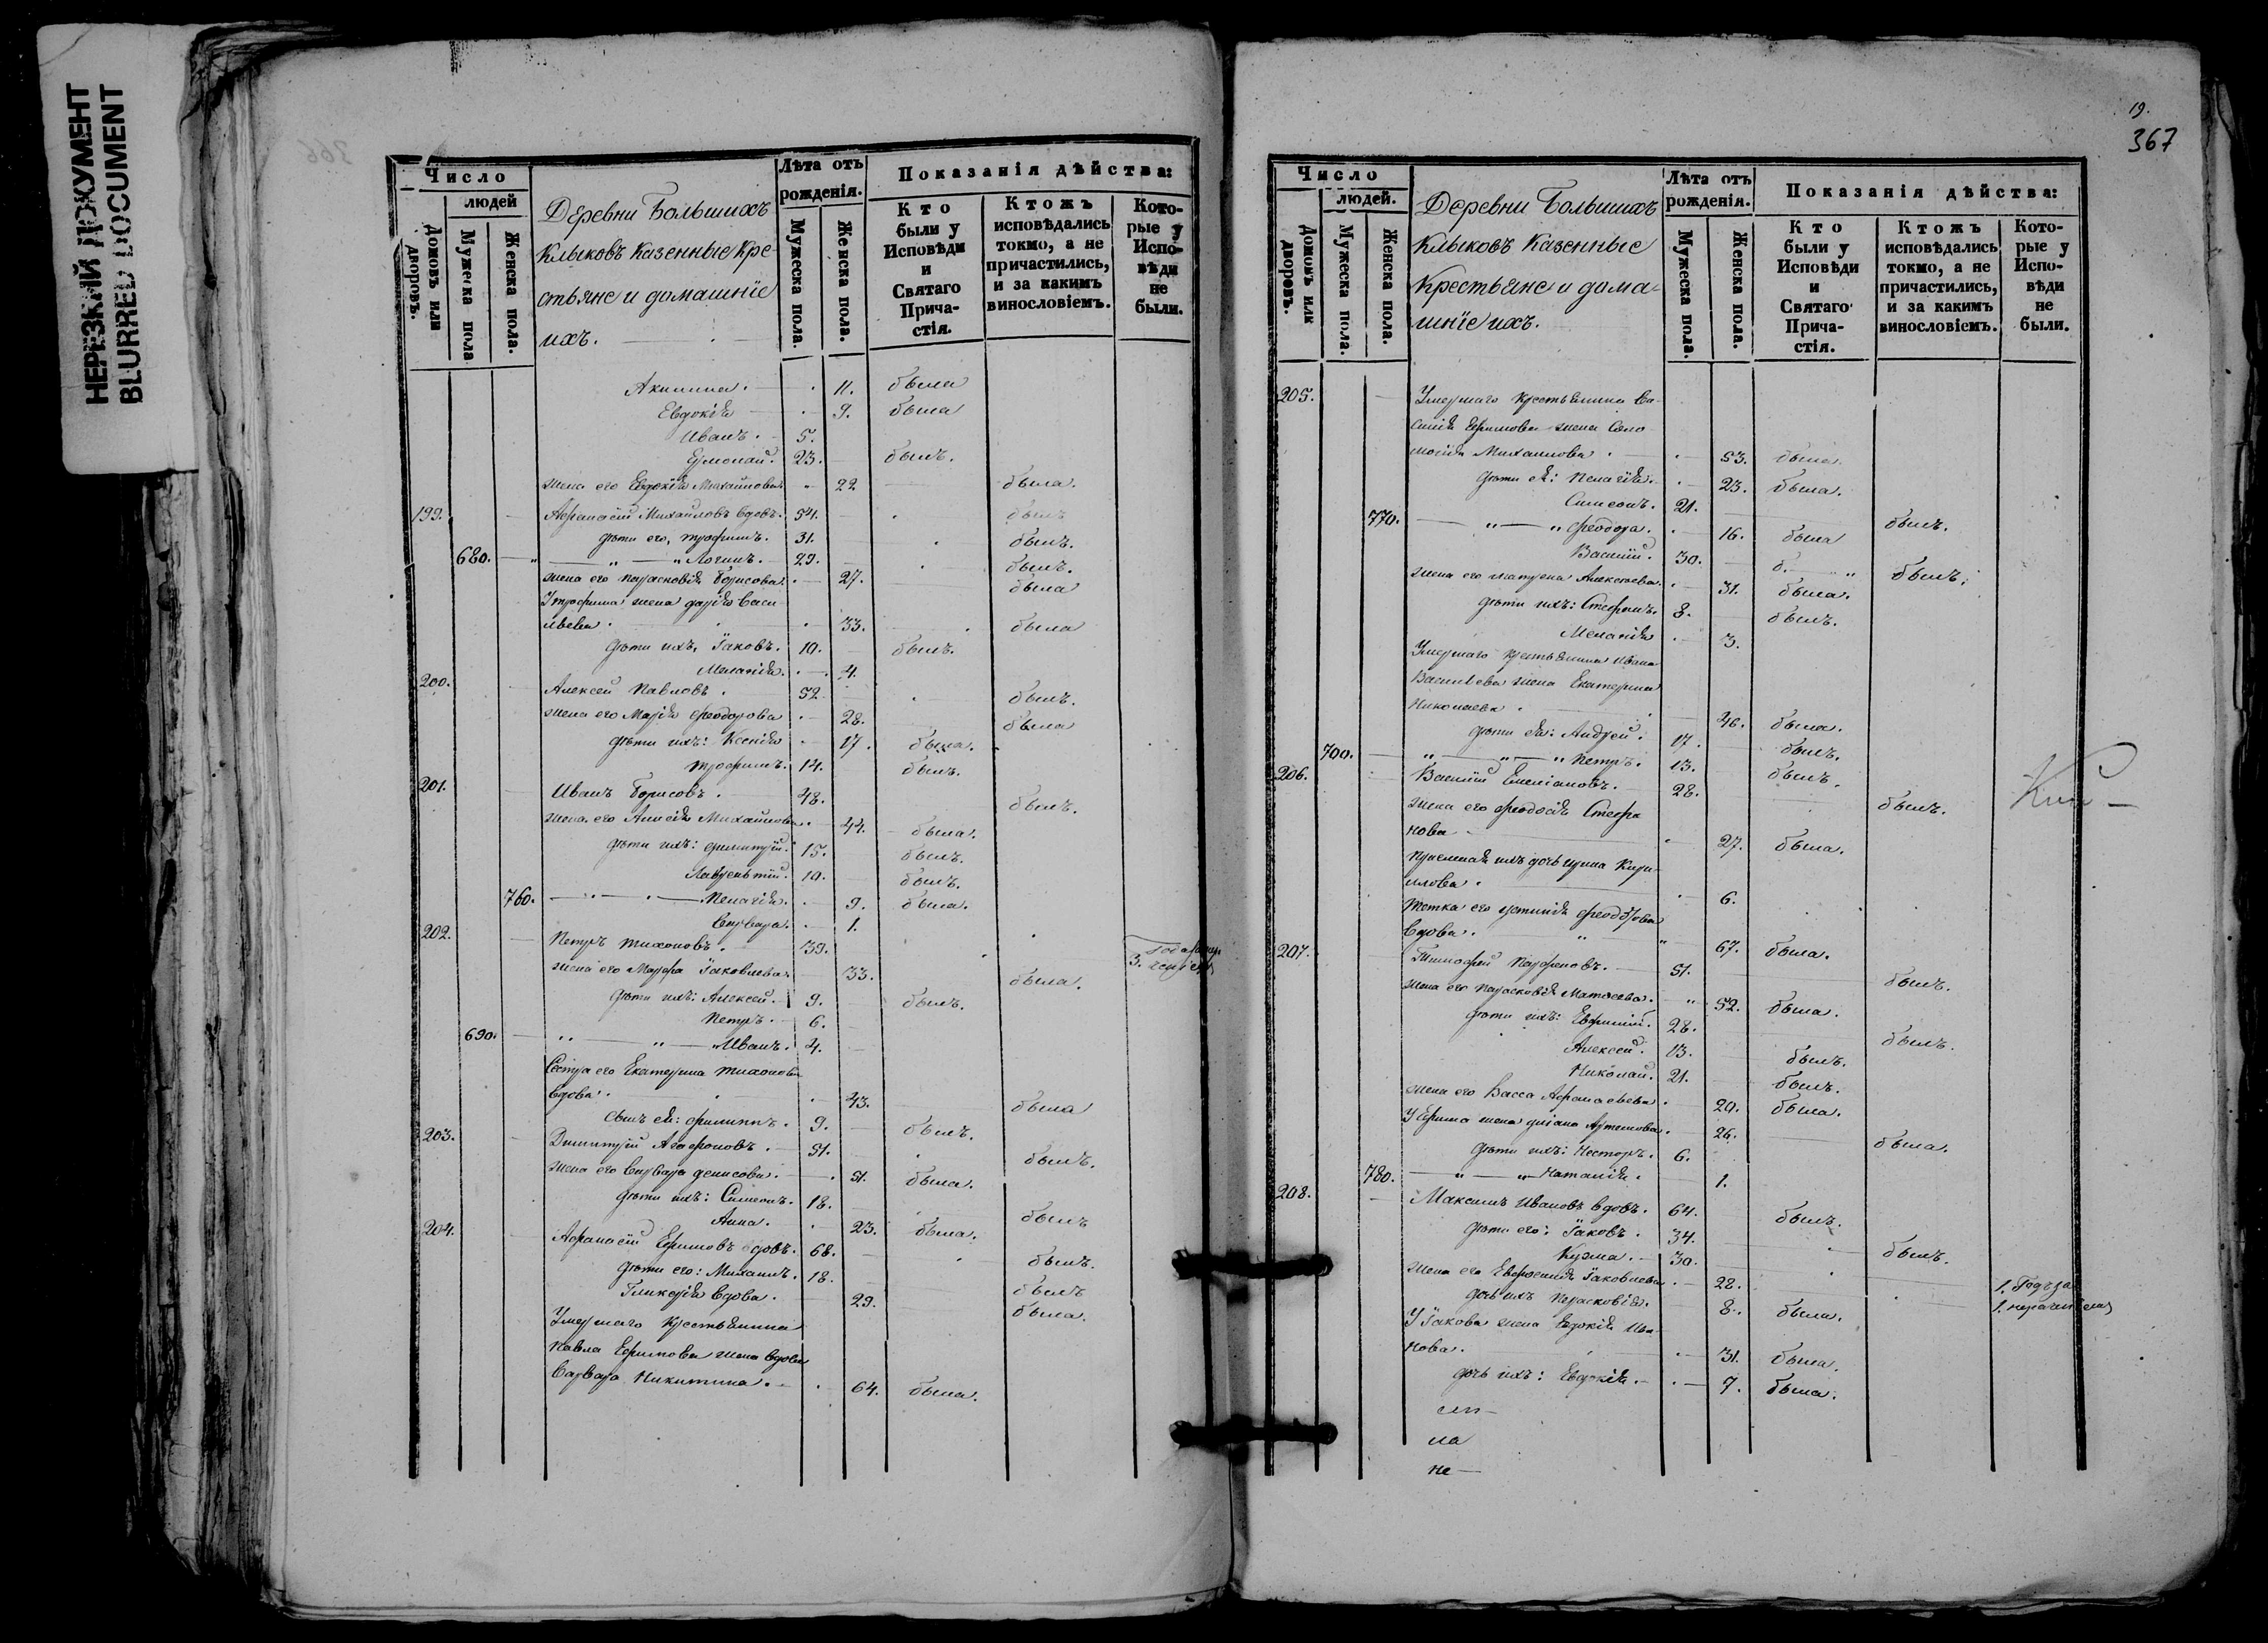 НЕРЕЗКИЙ ДОКУМЕНТ
BLURRED DOCUMENT
366
Число
людей
Домовъ или дворовъ.
Мужеска пола
Женска пола.
Деревни Большихъ
Клыковъ казенные кре-
стьяне и домашніе
ихъ.
Лѣта отъ рожденія.
Мужеска пола.
Женска пола.
Показанія дѣйства:
Кто были у Исповѣди и Святаго Прича-стія.
Ктожъ исповѣдались токмо, а не причастились, и за какимъ винословіемъ.
Кото-рые у Испо-вѣди не были.
Акилина. 11. была
Евдокія 9. была
Иванъ. 5.
Ермолай. 23. былъ.
жена его Евдокія Михайлова 22 была.
199. Афанасій Михайловъ вдовъ. 54. былъ
дѣти его, Трофимъ. 31. былъ.
680. " " Логинъ. 29. былъ.
жена его Парасковія Борисова. 27. была
У Трофима жена Дарія Васи-
льева. 33. была
дѣти ихъ, Іаковъ. 10. былъ.
Меланія. 4.
200. Алексей Павловъ. 52. былъ.
жена его Марія Феодорова 28. была
дѣти ихъ: Ксенія 17. была.
Трофимъ. 14. былъ.
201. Иванъ Борисовъ. 48. былъ.
жена его Анисія Михайлова 44. была.
дѣти ихъ: Димитрій. 15. былъ.
Лаврентій. 10. былъ.
760. Пелагія. 9. была.
Варвара. 1.
202. Петръ Тихоновъ. 39. 3.
жена его Марфа Іаковлева. 33. была.
дѣти ихъ: Алексей. 9. былъ.
Петръ. 6.
690. " " Иванъ. 4.
Сестра его Екатерина Тихонова
вдова. 43. была
сынъ ея: Филиппъ. 9. былъ.
203. Димитрій Агафоновъ. 51. былъ.
жена его Варвара Денисова. 51. была.
дѣти ихъ: Симеонъ. 18. былъ
Анна. 23. была.
204. Афанасій Ефимовъ вдовъ. 68. былъ.
дѣти его: Михаилъ. 18. былъ
Гликерія вдова. 29. была.
Умершаго крестьянина
Павла Ефимова жена вдова
Варвара Никитина. 64. была.
19.
367
Число
людей.
Домовъ или дворовъ.
Мужеска пола.
Женска пола.
Деревни Большихъ
Клыковъ казенные
крестьяне и дома-
шніе ихъ.
Лѣта отъ рожденія.
Мужеска пола.
Женска пола.
Показанія дѣйства:
Кто были у Исповѣди и Святаго Прича-стія.
Ктожъ исповѣдались токмо, а не причастились, и за какимъ винословіемъ.
Кото-рые у Испо-вѣди не были.
205. Умершаго крестьянина Ва-
силія Ефимова жена Соло-
монія Михаилова. 53. была.
дѣти ея: Пелагія. 23. была.
Симеонъ. 21. былъ.
770. " " Феодора. 16. была
Василій. 30. былъ.
жена его Матрена Алексеева. 31. была.
дѣти ихъ: Стефанъ. 8. былъ.
Меланія 3.
Умершаго крестьянина Ивана
Васильева жена Екатерина
Николаева. 46. была.
дѣти ея: Андрей. 17. былъ.
700. " " " Петръ. 13. былъ.
206. Василій Емеліановъ. 28. былъ.
жена его Феодосія Стефа
нова 27. была.
Приемная ихъ дочь Ирина Кири-
ллова. 6.
Тетка его Устинія Феодорова
вдова. 67. была.
207. Тимофей Парфеновъ. 51. былъ.
жена его Парасковія Матвеева. 52. была.
дѣти ихъ: Ефимій. 28. былъ.
Алексей. 13. былъ.
Николай. 21. былъ.
жена его Васса Афанасьева. 20. была.
У Ефима жена Улiана Артемова. 26. была.
дѣти ихъ: Несторъ. 6.
780. " " Наталія. 1.
208. Максимъ Ивановъ вдовъ. 64. былъ.
дѣти его: Іаковъ. 34.
Кузма. 30. былъ.
жена его Евфросинія Іаковлева. 28. 1. Годъ за
дочь ихъ Парасковія. 8. была.
У Іакова жена Евдокія Ива-
нова. 31. была.
дочь ихъ: Евдокія. 7. была.
сіи
ла
не